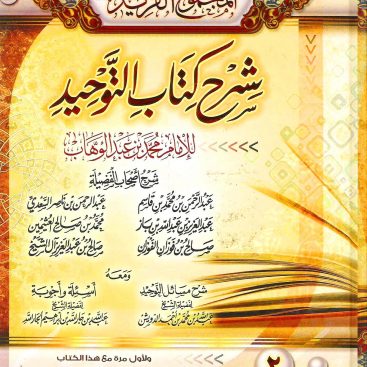 الفريد
شرح كتاب التَّوحيد
للإمام محمد بن عبد الوهاب
شرح أصحاب الفضيلة
عبد الرحمن بن محمد بن قاسم عبد الرحمن بن ناصر السعدي
عبد العزيز بن عبد الله بن باز محمد بن صالح العثيمين
صالح بن فوزان الفوزان صالح بن عبد العزيز آل الشيخ
ومعه
شرح مسائل التوحيد أسئلة وأجوبة
لفضيلة الشيخ لفضيلة الشيخ
عبد الله بن محمد بن أحمد الدويش عبد الله بن جار الله بن إبراهيم الجار الله
ولأول مرة مع هذا الكتاب
٢